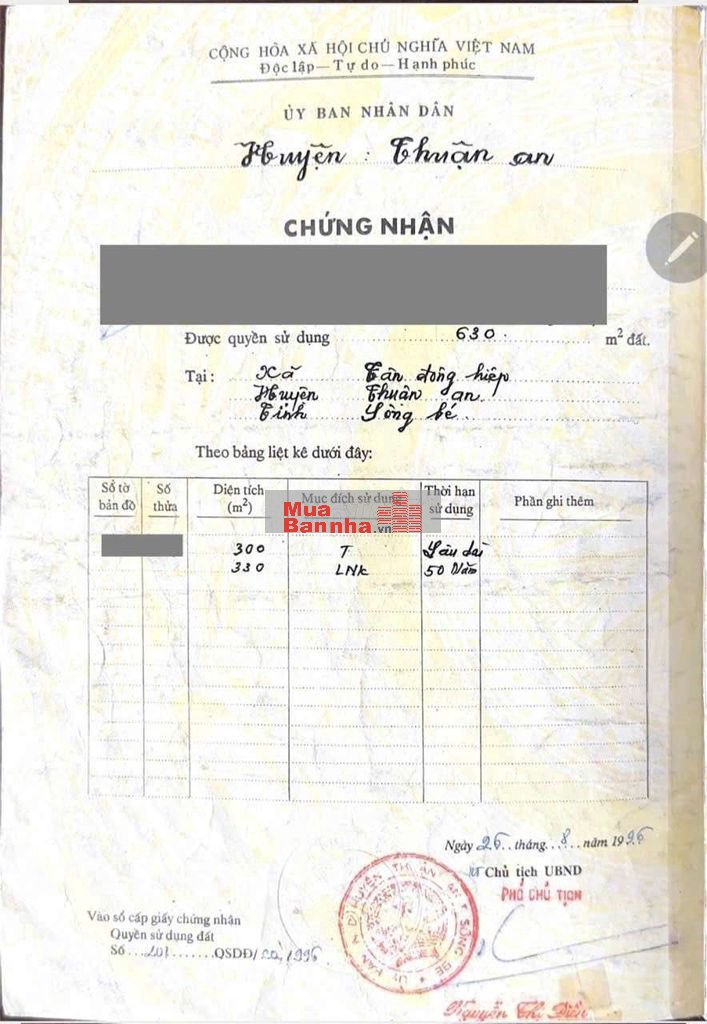 CỘNG HÒA XÃ HỘI CHỦ NGHĨA VIỆT NAM
Độc lập — Tự do — Hạnh phúc
ỦY BAN NHÂN DÂN
Huyện : Thuận an
CHỨNG NHẬN
Được quyền sử dụng 630 m² đất.
Tại : Xã Tân đông hiệp
Huyện Thuận an
Tỉnh Sông bé
Theo bảng liệt kê dưới đây:
Số tờ bản đồ Số thửa Diện tích (m²) Mục đích sử dụng Thời hạn sử dụng Phần ghi thêm
Mua
Bannha.vn
300 T Lâu dài
330 LNK 50 Năm
Ngày 26 tháng 8 năm 1996
KT Chủ tịch UBND
PHÓ CHỦ TỊCH
Vào sổ cấp giấy chứng nhận
Quyền sử dụng đất
Số 201 QSDĐ/ 1996
Nguyễn Thị Điền